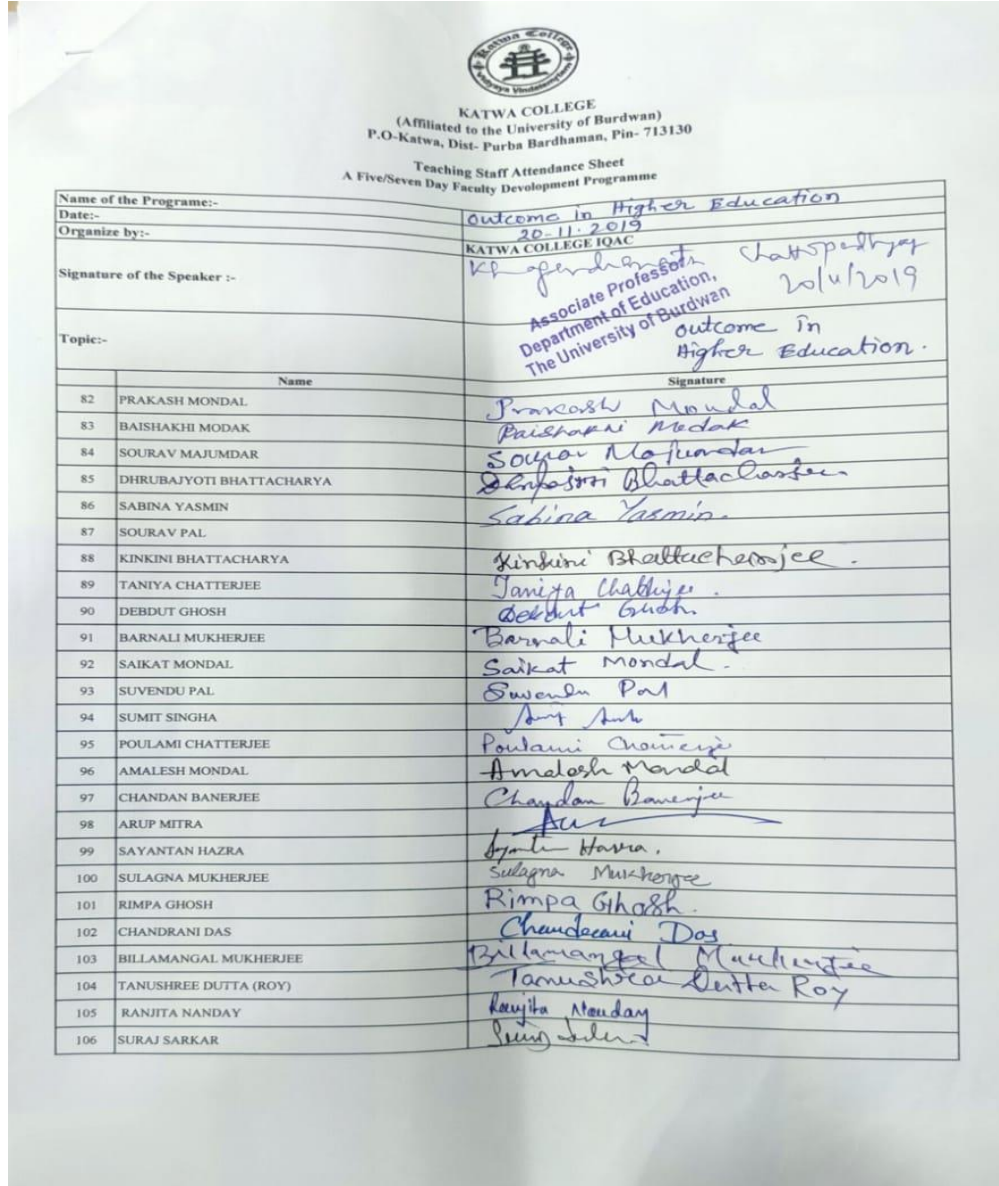 Katwa College
Vidyaya Vindatemritam
KATWA COLLEGE
(Affiliated to the University of Burdwan)
P.O-Katwa, Dist- Purba Bardhaman, Pin- 713130
Teaching Staff Attendance Sheet
A Five/Seven Day Faculty Devolopment Programme
Name of the Programe:- Outcome in Higher Education
Date:- 20-11.2019
Organize by:- KATWA COLLEGE IQAC
Signature of the Speaker :- Chattopadhyay
20/11/2019
Associate Professor
Department of Education,
The University of Burdwan
Topic:- Outcome in
Higher Education.
Name Signature
82 PRAKASH MONDAL Prakash Mondal
83 BAISHAKHI MODAK Baishakhi Modak
84 SOURAV MAJUMDAR Sourav Majumdar
85 DHRUBAJYOTI BHATTACHARYA Bhattacharjee
86 SABINA YASMIN Sabina Yasmin.
87 SOURAV PAL
88 KINKINI BHATTACHARYA Kinkini Bhattacharjee.
89 TANIYA CHATTERJEE Taniya Chatterjee.
90 DEBDUT GHOSH Debdut Ghosh.
91 BARNALI MUKHERJEE Barnali Mukherjee
92 SAIKAT MONDAL Saikat Mondal.
93 SUVENDU PAL Suvendu Pal
94 SUMIT SINGHA
95 POULAMI CHATTERJEE Poulami Chatterjee
96 AMALESH MONDAL Amalesh Mondal
97 CHANDAN BANERJEE Chandan Banerjee
98 ARUP MITRA
99 SAYANTAN HAZRA Hazra.
100 SULAGNA MUKHERJEE Sulagna Mukherjee
101 RIMPA GHOSH Rimpa Ghosh.
102 CHANDRANI DAS Chandrani Das
103 BILLAMANGAL MUKHERJEE Billamangal Mukherjee
104 TANUSHREE DUTTA (ROY) Tanushree Dutta Roy
105 RANJITA NANDAY Ranjita Nanday
106 SURAJ SARKAR